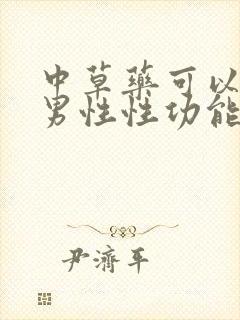 中草藥可以
男性性功能
尹濟平